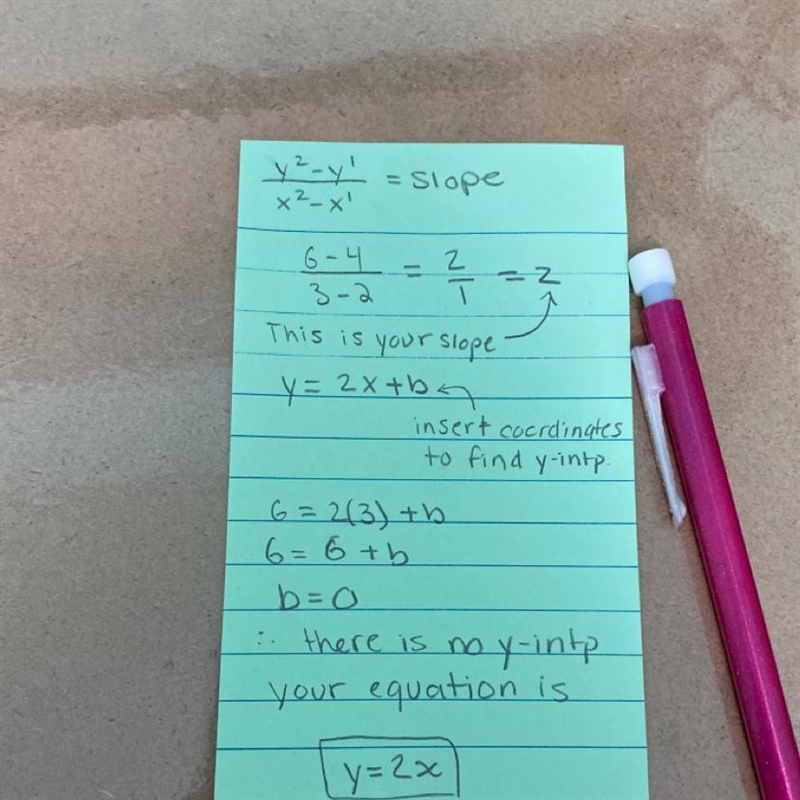 y²-y¹ / x²-x¹ = slope
6-4 / 3-2 = 2/1 = 2
This is your slope
y = 2x+b
insert coordinates
to find y-intp.
6 = 2(3) +b
6 = 6 +b
b=0
∴ there is no y-intp
your equation is
y=2x